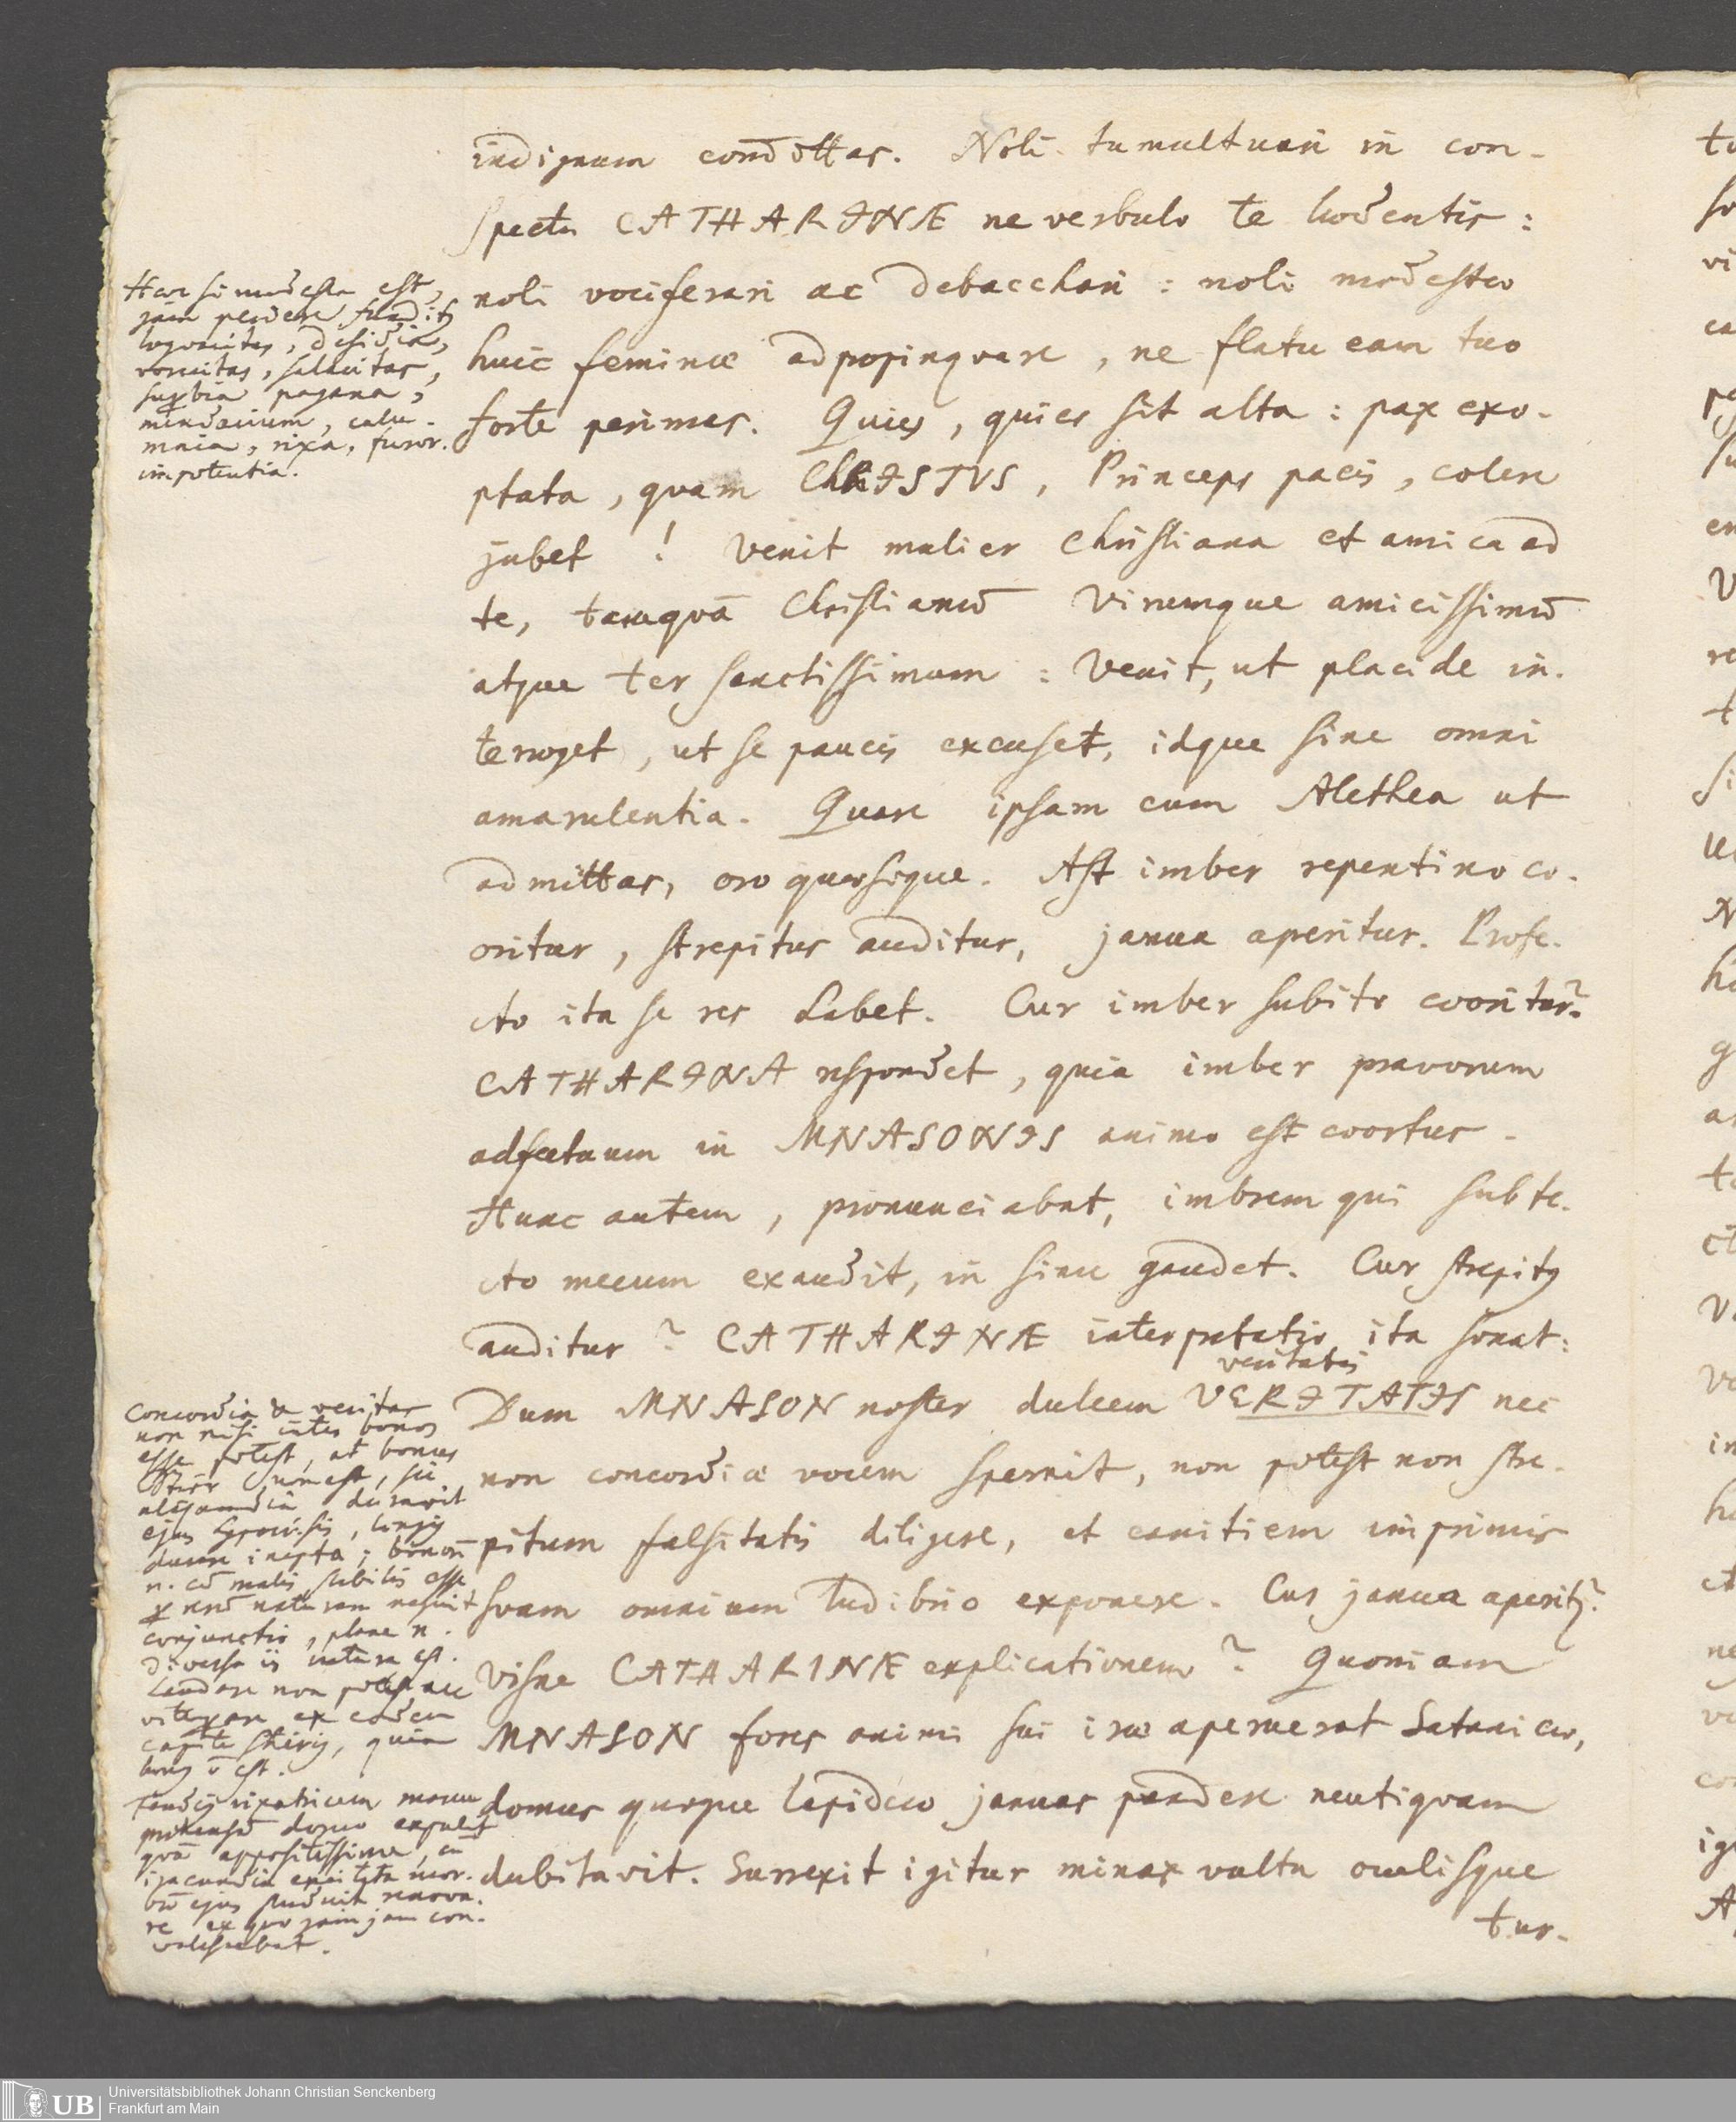 indignum committas. Noli tumultuari in con-
spectu CATHARINÆ ne verbulo te lædentis:
noli vociferari ac debacchari: noli modestæ
huic feminæ adpropinquare, ne flatu eam tuo
forte perimas. Quies, quies sit alta: pax exo-
ptata, quam ChRISTVS, Princeps pacis, colere
jubet! Venit mulier Christiana et amica ad
te, tamquā Christianū Virumque amicissimū
atque ter sanctissimum: Venit, ut placide in-
terroget, ut se paucis excuset, idque sine omni
amarulentia. Quare ipsam cum Alethea ut
admittas, oro quæsoque. Ast imber repentino co-
oritur, strepitus auditur, janua aperitur. Profe-
cto ita se res habet. Cur imber subito cooritur?
CATHARINA respondet, quia imber pravorum
adfectuum in MNASONIS animo est coortus.
Hunc autem, pronunciabat, imbrem qui sub te-
cto mecum exaudit, in sinu gaudet. Cur strepitus
auditur? CATHARINÆ interpretatio ita sonat:
veritatis
Dum MNASON noster dulcem VERITATIS nec
non concordiæ vocem spernit, non potest non stre-
pitum falsitatis diligere, et canitiem imprimis
suam omnium ludibrio exponere. Cur janua aperitur?
Visne CATHARINÆ explicationem? Quoniam
MNASON fores animi sui iræ aperuerat Satanicæ,
domus quoque lapideæ januas pandere neutiquam
dubitavit. Surrexit igitur minax vultu oculisque
tur-
Hæc si modesta est,
jam perdere funditus
loquacitas, desidia,
voracitas, salacitas,
superbia pagana,
mendacium, calu-
mnia, rixa, furor,
impotentia.
Concordia & veritas
non nisi inter bonos
esse potest, at bonus
non est, sic
aliquamdiu duravit
ejus hypocrisis,
n. cū malis stabilis esse
naturam nequit
conjunctio, plane n.
diversa iis natura est.
Laudare non potest nec
vituperare ex eodem
capite quia
est.
rixatricem manu
domo expulit
quā appositissime
iracundia excitata mor-
bū ejus renova-
re ex quo jam jam con-
valescebat.
Universitätsbibliothek Johann Christian Senckenberg
Frankfurt am Main
UB